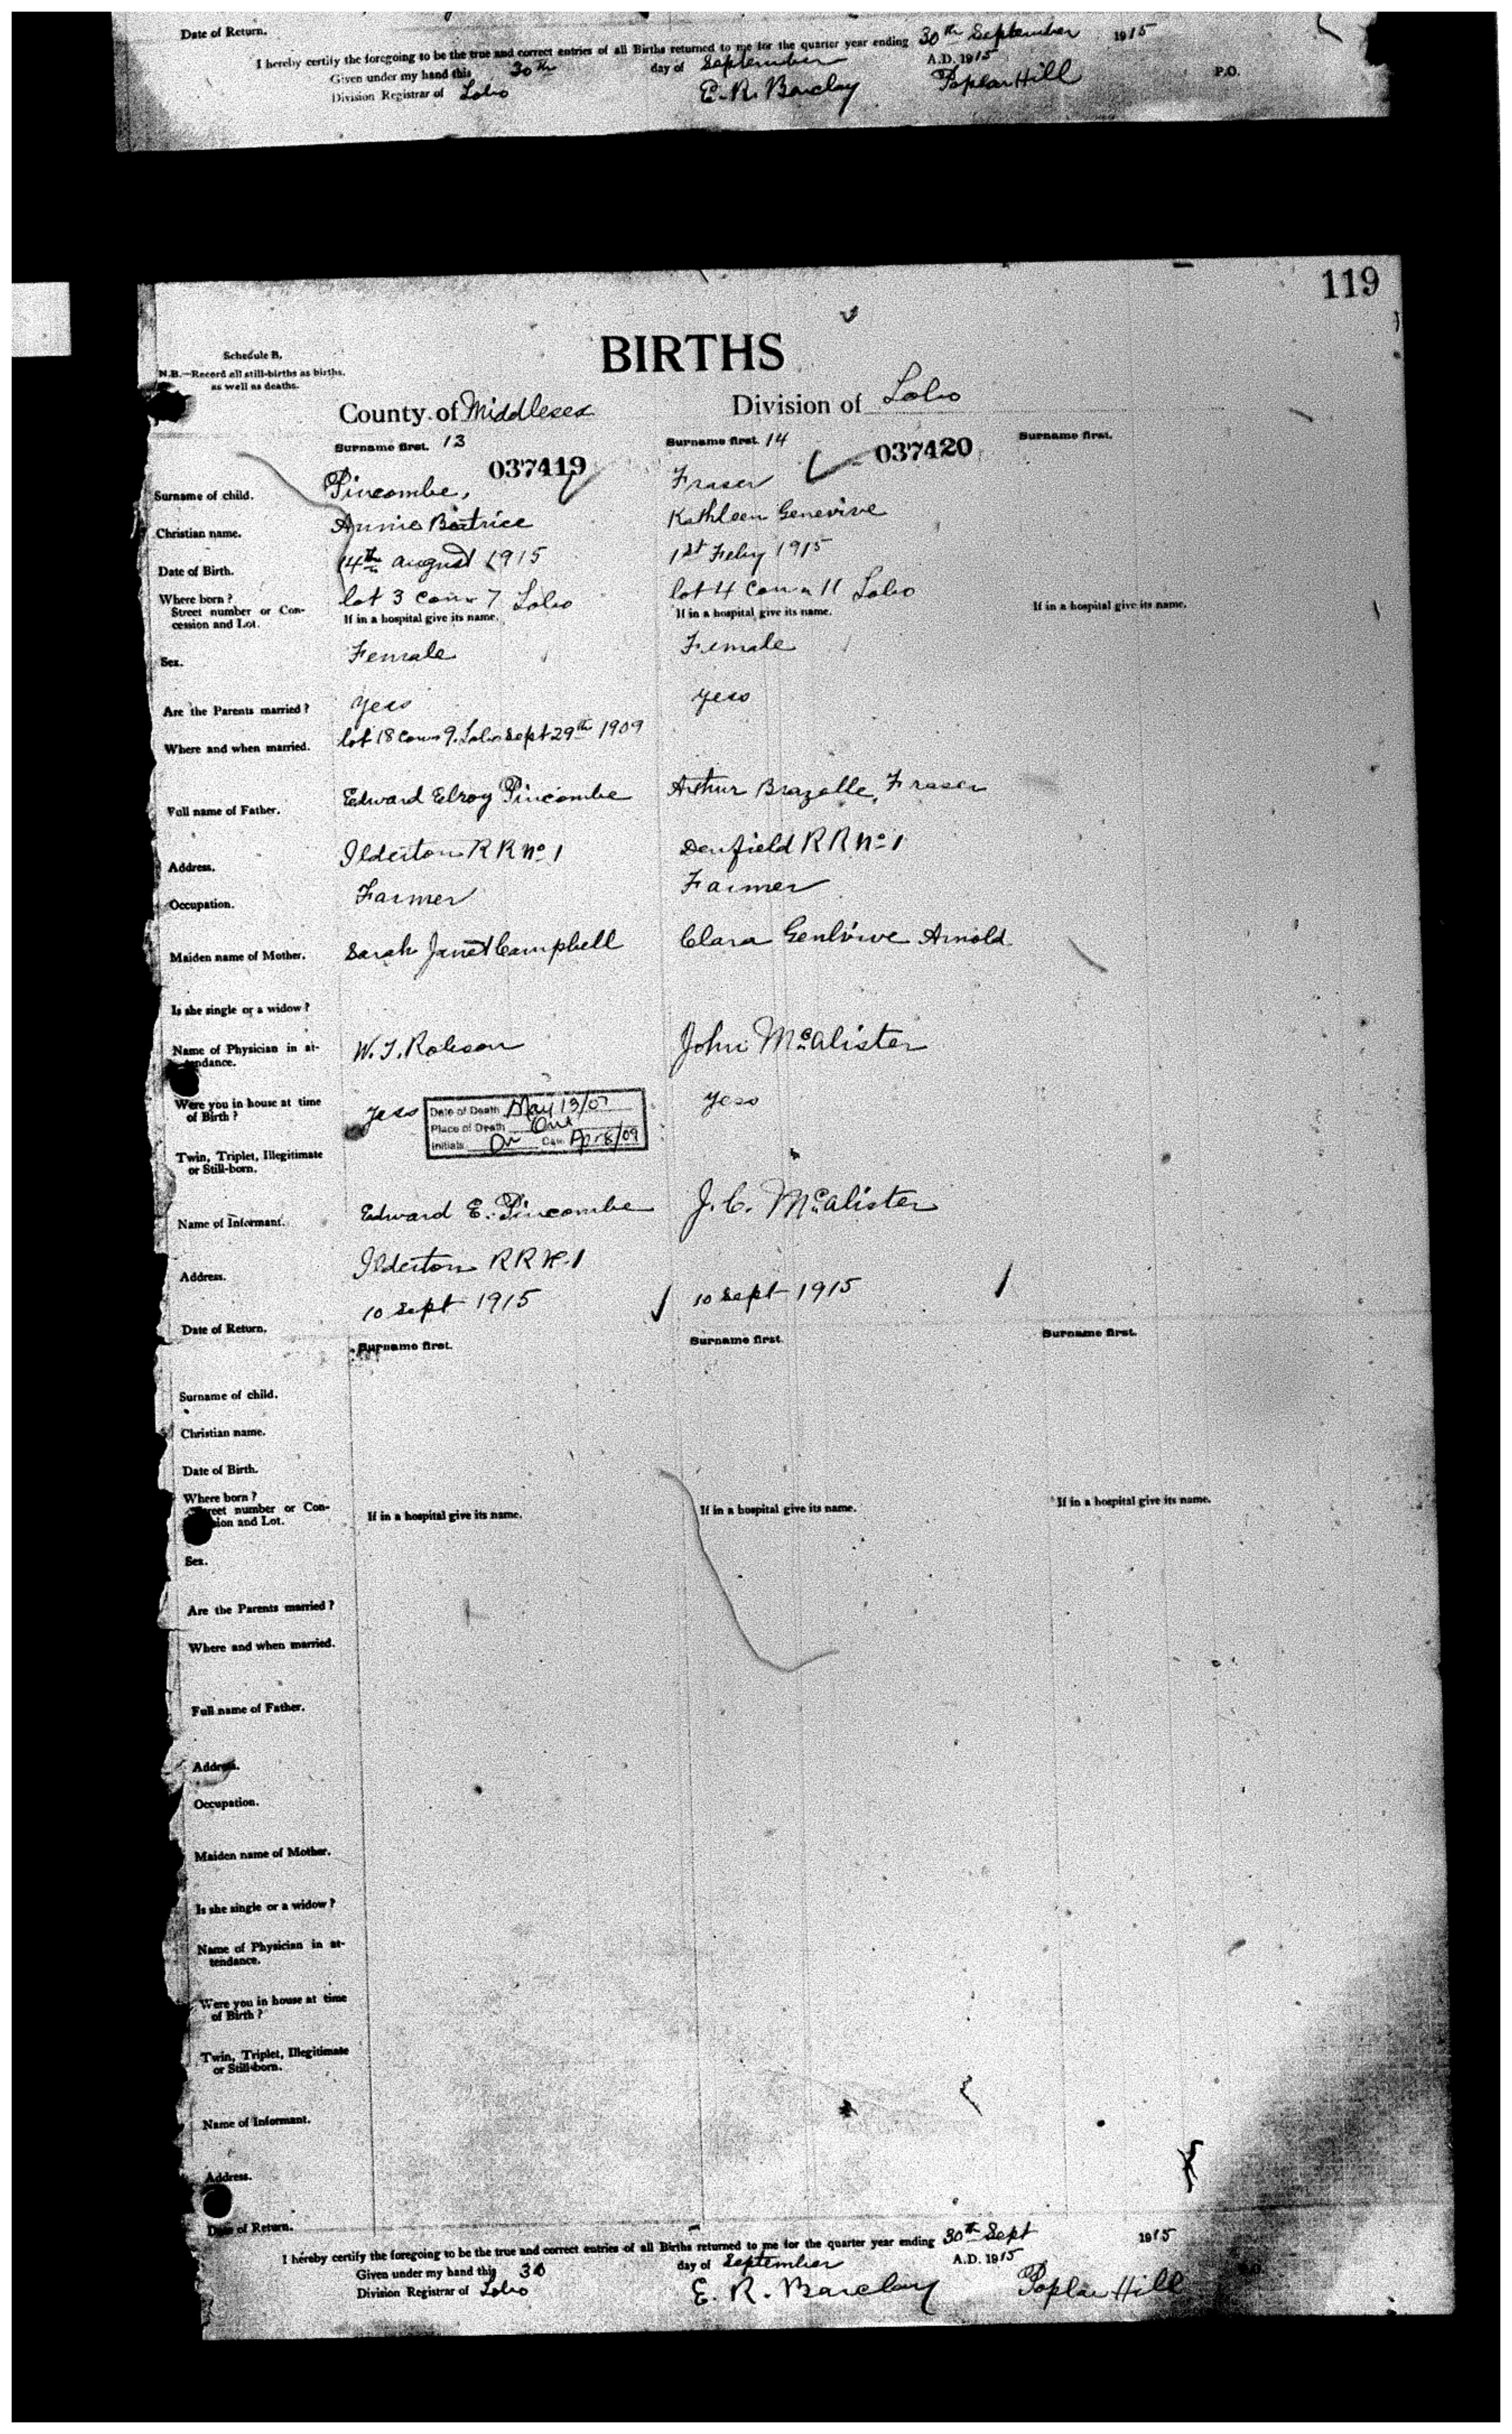 Date of Return.
I hereby certify the foregoing to be the true and correct entries of all Births returned to me for the quarter year ending 30th September 1915
Given under my hand this 30th day of September A.D. 1915
Division Registrar of Lobo E. R. Barclay Poplar Hill P.O.
119
Schedule B.
N.B.—Record all still-births as births, as well as deaths.
BIRTHS
County of Middlesex Division of Lobo
Surname first. 13 Surname first. 14 Surname first.
037419 037420
Surname of child. Pincombe, Fraser
Christian name. Annie Beatrice Kathleen Genevive
Date of Birth. 14th august 1915 1st Feby 1915
Where born? lot 3 con 7 Lobo lot 4 con 11 Lobo
Street number or Concession and Lot. If in a hospital give its name. If in a hospital give its name. If in a hospital give its name.
Sex. Female Female
Are the Parents married? yes yes
Where and when married. lot 18 con 9. Lobo Sept 29th 1909
Full name of Father. Edward Elroy Pincombe Arthur Fraser
Address. Ilderton RR No 1 Denfield RR No 1
Occupation. Farmer Farmer
Maiden name of Mother. Sarah Janet Campbell Clara Arnold
Is she single or a widow?
Name of Physician in attendance. W. J. Robson John McAlister
Were you in house at time of Birth? yes yes
Date of Death May 13/07
Place of Death Ont
Initials Date Apr 8/09
Twin, Triplet, Illegitimate or Still-born.
Name of Informant. Edward E. Pincombe J. C. McAlister
Address. Ilderton RR No 1
Date of Return. 10 Sept 1915 10 Sept 1915
Surname first. Surname first. Surname first.
Surname of child.
Christian name.
Date of Birth.
Where born?
Street number or Concession and Lot. If in a hospital give its name. If in a hospital give its name. If in a hospital give its name.
Sex.
Are the Parents married?
Where and when married.
Full name of Father.
Address.
Occupation.
Maiden name of Mother.
Is she single or a widow?
Name of Physician in attendance.
Were you in house at time of Birth?
Twin, Triplet, Illegitimate or Still-born.
Name of Informant.
Address.
Date of Return.
I hereby certify the foregoing to be the true and correct entries of all Births returned to me for the quarter year ending 30th Sept 1915
Given under my hand this 30 day of September A.D. 1915
Division Registrar of Lobo E. R. Barclay Poplar Hill P.O.